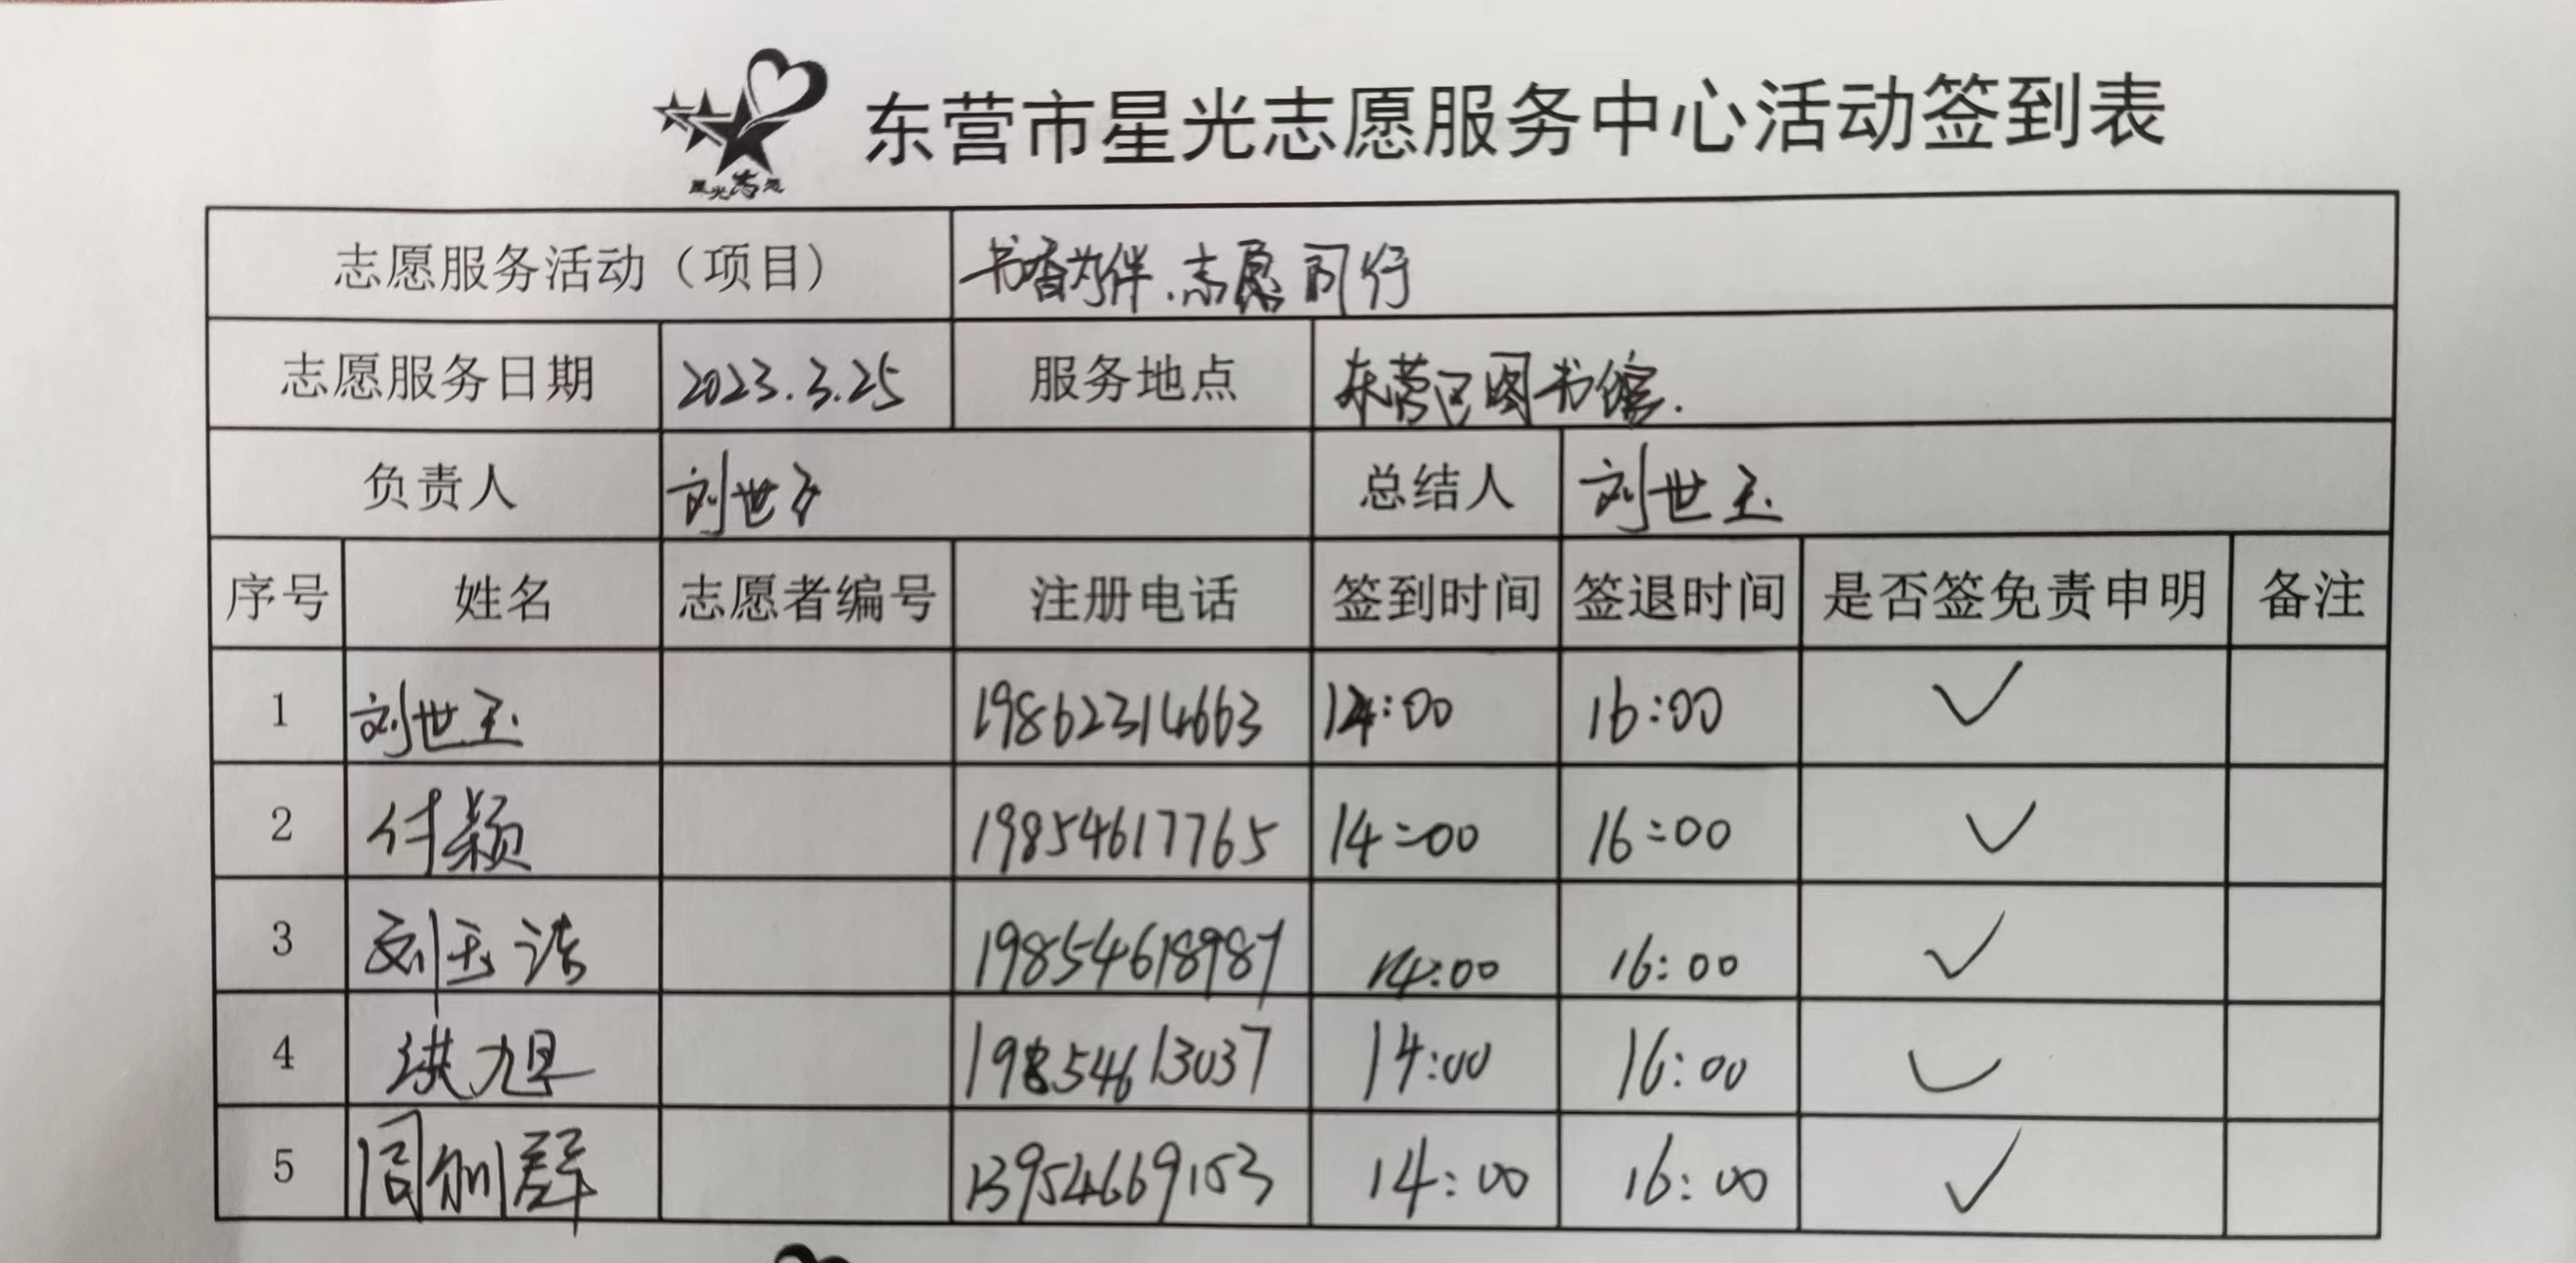 东营市星光志愿服务中心活动签到表
星光志愿
志愿服务活动（项目） 书香为伴.志愿同行
志愿服务日期 2023.3.25 服务地点 东营区图书馆.
负责人 刘世玉 总结人 刘世玉
序号 姓名 志愿者编号 注册电话 签到时间 签退时间 是否签免责申明 备注
1 刘世玉 19862314663 14:00 16:00 ✓
2 付颖 19854617765 14:00 16:00 ✓
3 刘玉洁 19854618987 14:00 16:00 ✓
4 洪旭 19854613037 14:00 16:00 ✓
5 周 群 13954669153 14:00 16:00 ✓